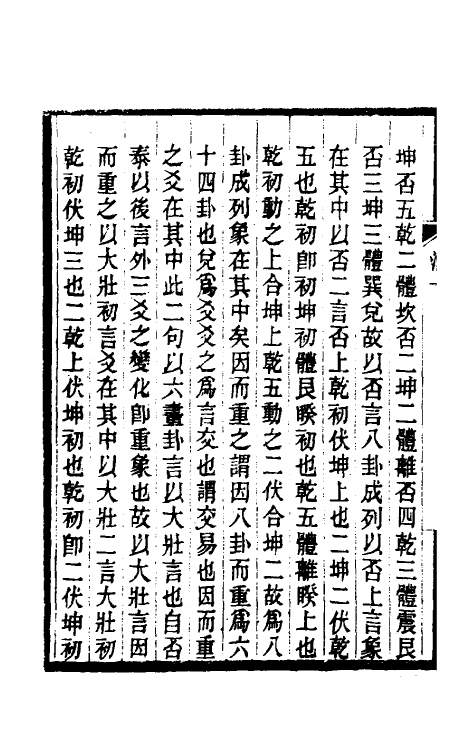 坤否五乾二體坎否二坤二體離否四乾三體震艮
否三坤三體巽兌故以否言八卦成列以否上言象
在其中以否二言否上乾初伏坤上也二坤二伏乾
五也乾初卽初坤初體艮睽初也乾五體離睽上也
乾初動之上合坤上乾五動之二伏合坤二故爲八
卦成列象在其中矣因而重之謂因八卦而重爲六
十四卦也兌爲爻爻之爲言交也謂交易也因而重
之爻在其中此二句以六畫卦言以大壯言也自否
泰以後言外三爻之變化卽重象也故以大壯言因
而重之以大壯初言爻在其中以大壯二言大壯初
乾初伏坤三也二乾上伏坤初也乾初卽二伏坤初